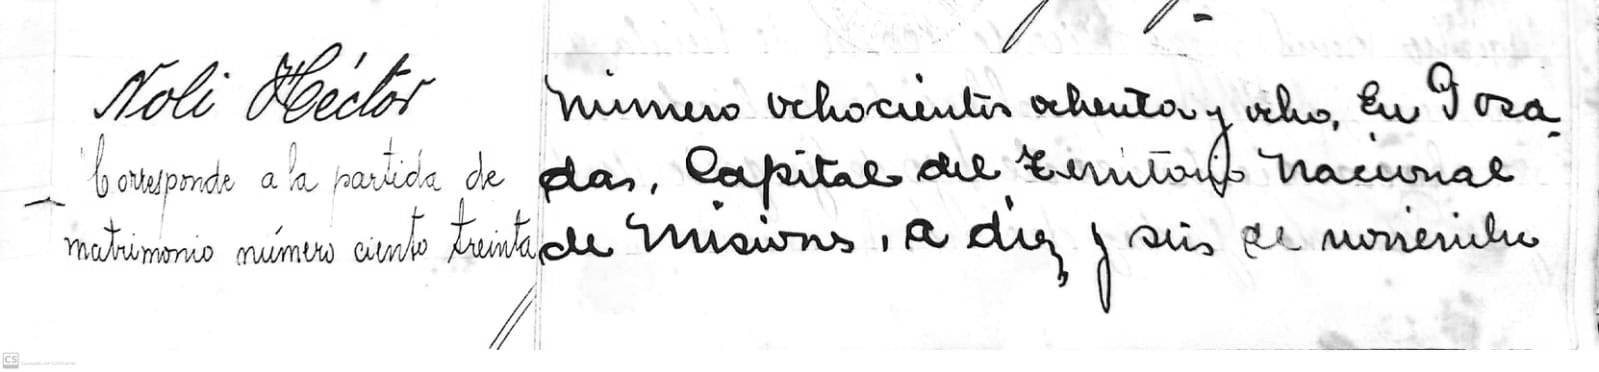 Noli Héctor
Corresponde a la partida de
matrimonio número ciento treinta
Número ochocientos ochenta y ocho. En Posa-
das, Capital del Territorio Nacional
de Misiones, a diez y seis de noviembre
CS